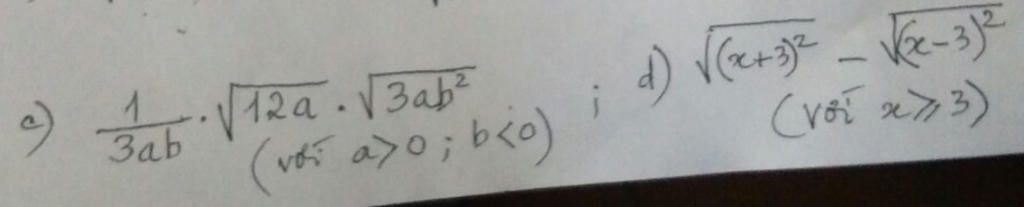 c) \frac{1}{3ab} \cdot \sqrt{12a} \cdot \sqrt{3ab^2} ; d) \sqrt{(x+3)^2} - \sqrt{(x-3)^2}
(với a>0 ; b<0) (với x⩾3)